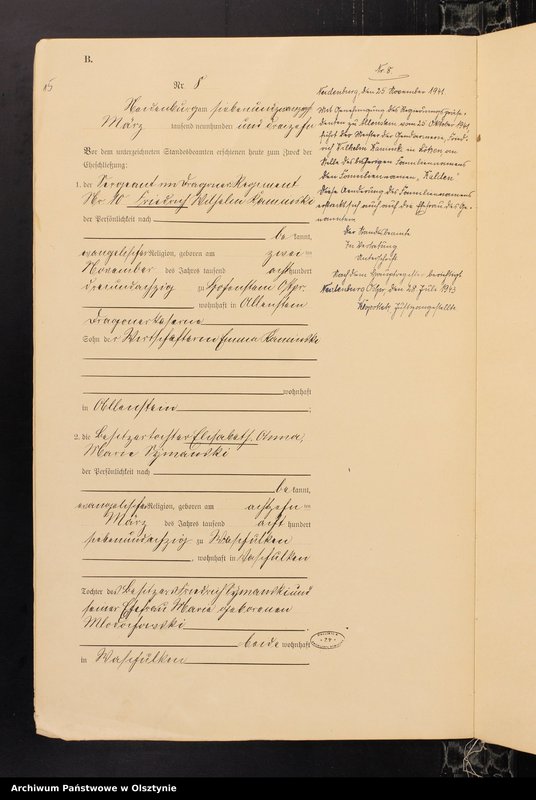 B.
15
Nr. 8
Neidenburg am siebenundzwanzigsten
März tausend neunhundert und dreizehn
Vor dem unterzeichneten Standesbeamten erschienen heute zum Zweck der
Eheschließung:
1. der Sergeant im Dragoner Regiment
Nr. 10 Friedrich Wilhelm Kaminski
der Persönlichkeit nach
be kannt,
evangelischer Religion, geboren am zwei ten
November des Jahres tausend acht hundert
dreiundachzig zu Hohenstein Ostpr.
wohnhaft in Allenstein
Dragonerkaserne
Sohn der Wirtschafterin Emma Kaminski
wohnhaft
in Allenstein
2. die Besitzertochter Elisabeth Anna
Marie Szymanski
der Persönlichkeit nach
be kannt,
evangelischer Religion, geboren am achtzehn ten
März des Jahres tausend acht hundert
siebenundachzig zu Waschulken
, wohnhaft in Waschulken
Tochter des Besitzers Friedrich Szymanski und
seiner Ehefrau Marie geborenen
beide wohnhaft
in Waschulken
Nr. 8.
Neidenburg, den 25. November 1941
Mit Genehmigung des Regierungspräsi-
denten zu Allenstein vom 25. Oktober 1941
führt der Meister der Gendarmerie, Fried-
rich Wilhelm Kaminski in Lötzen an
Stelle des bisherigen Familiennamens
den Familiennamen
Diese Aenderung des Familiennamens
erstreckt sich auch auf die Ehefrau des Ge-
nannten.
Der Standesbeamte
In Vertretung
Unterschrift
Nach dem Hauptregister berichtigt
Neidenburg Ostpr., den 28. Juli 1943
Justizangestellte
Archiwum Państwowe w Olsztynie